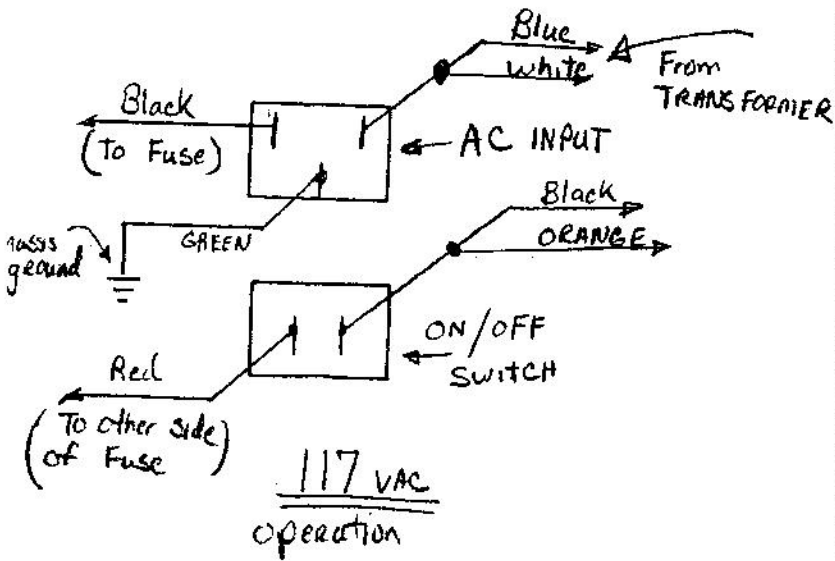 Blue
White
From
TRANSFORMER
Black
(To Fuse)
AC INPUT
GREEN
ground
Black
ORANGE
ON/OFF
SWITCH
Red
(To other side
of Fuse)
117 VAC
operation